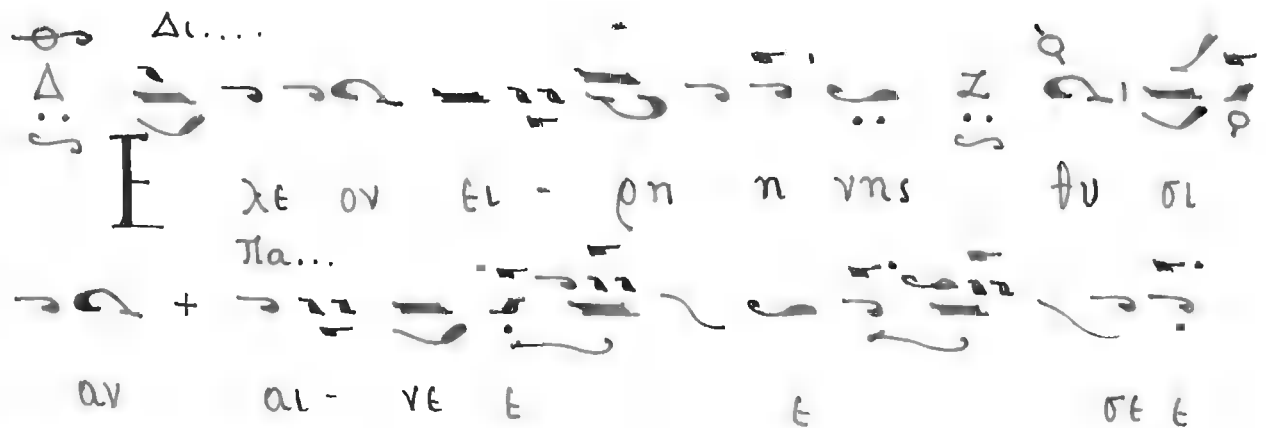 Δι....
Δ Ζ
Ε λε ον ει - ρη η νης θυ σι
Πα...
αν αι - νε ε ε σε ε